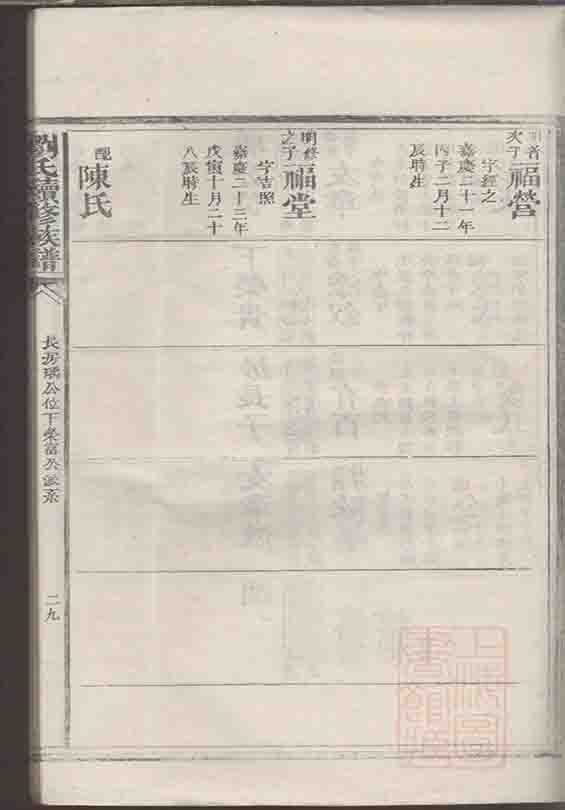 次子
福營
字經之
嘉慶二十一年
丙子二月十二
辰時生
明修
之子
福堂
字吉照
嘉慶二十三年
戊寅十月二十
八辰時生
配
陳氏
劉氏續修族譜
長房瑀公位下榮富公派系
二九
上海圖書館藏